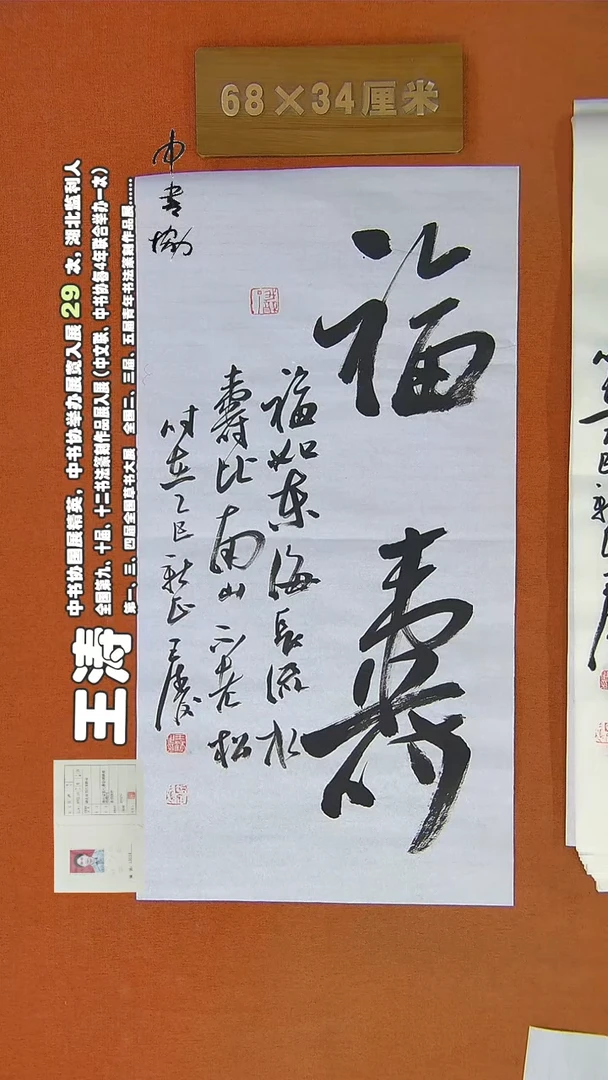 68×34厘米
中书协
福寿
福如东海长流水
寿比南山不老松
时在乙巳新正 王涛
中书协国展精英，中书协举办展览入展 29 次，湖北监利人
全国第九、十届、十二书法篆刻作品展入展（中文联、中书协每4年联合举办一次）
第一、三、四届全国草书大展 全国二、三届、五届青年书法篆刻作品展……
王涛